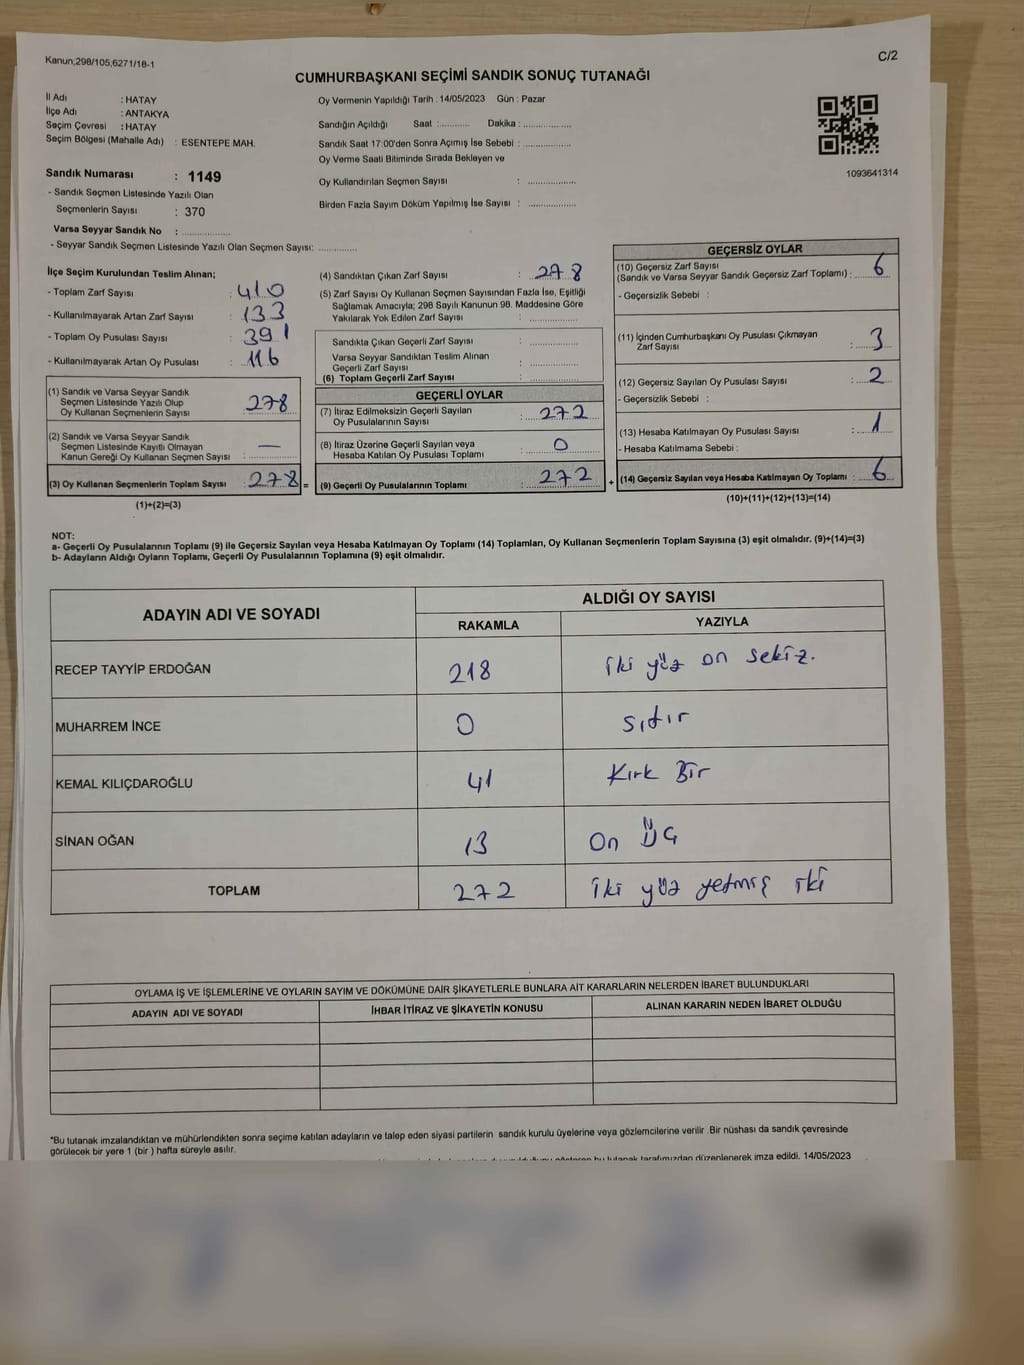 Kanun,298/105,6271/18-1
C/2
CUMHURBAŞKANI SEÇİMİ SANDIK SONUÇ TUTANAĞI
İl Adı : HATAY
İlçe Adı : ANTAKYA
Seçim Çevresi : HATAY
Seçim Bölgesi (Mahalle Adı) : ESENTEPE MAH.
Sandık Numarası : 1149
- Sandık Seçmen Listesinde Yazılı Olan
Seçmenlerin Sayısı : 370
Varsa Seyyar Sandık No : ..................
- Seyyar Sandık Seçmen Listesinde Yazılı Olan Seçmen Sayısı: ..............
Oy Vermenin Yapıldığı Tarih : 14/05/2023 Gün : Pazar
Sandığın Açıldığı Saat :........... Dakika : ..................
Sandık Saat 17:00'den Sonra Açımış İse Sebebi : ..................
Oy Verme Saati Bitiminde Sırada Bekleyen ve
Oy Kullandırılan Seçmen Sayısı : ..................
Birden Fazla Sayım Döküm Yapılmış İse Sayısı : ..................
1093641314
İlçe Seçim Kurulundan Teslim Alınan;
- Toplam Zarf Sayısı : 410
- Kullanılmayarak Artan Zarf Sayısı : 133
- Toplam Oy Pusulası Sayısı : 391
- Kullanılmayarak Artan Oy Pusulası : 116
(1) Sandık ve Varsa Seyyar Sandık
Seçmen Listesinde Yazılı Olup
Oy Kullanan Seçmenlerin Sayısı : 278
(2) Sandık ve Varsa Seyyar Sandık
Seçmen Listesinde Kayıtlı Olmayan
Kanun Gereği Oy Kullanan Seçmen Sayısı : —
(3) Oy Kullanan Seçmenlerin Toplam Sayısı : 278 =
(1)+(2)=(3)
(4) Sandıktan Çıkan Zarf Sayısı : 278
(5) Zarf Sayısı Oy Kullanan Seçmen Sayısından Fazla İse, Eşitliği
Sağlamak Amacıyla; 298 Sayılı Kanunun 98. Maddesine Göre
Yakılarak Yok Edilen Zarf Sayısı : ..................
Sandıkta Çıkan Geçerli Zarf Sayısı : ..................
Varsa Seyyar Sandıktan Teslim Alınan
Geçerli Zarf Sayısı : ..................
(6) Toplam Geçerli Zarf Sayısı : ..................
GEÇERLİ OYLAR
(7) İtiraz Edilmeksizin Geçerli Sayılan
Oy Pusulalarının Sayısı : 272
(8) İtiraz Üzerine Geçerli Sayılan veya
Hesaba Katılan Oy Pusulası Toplamı : 0
(9) Geçerli Oy Pusulalarının Toplamı : 272 +
GEÇERSİZ OYLAR
(10) Geçersiz Zarf Sayısı
(Sandık ve Varsa Seyyar Sandık Geçersiz Zarf Toplamı) : 6
- Geçersizlik Sebebi :
(11) İçinden Cumhurbaşkanı Oy Pusulası Çıkmayan
Zarf Sayısı : 3
(12) Geçersiz Sayılan Oy Pusulası Sayısı : 2
- Geçersizlik Sebebi :
(13) Hesaba Katılmayan Oy Pusulası Sayısı : 1
- Hesaba Katılmama Sebebi :
(14) Geçersiz Sayılan veya Hesaba Katılmayan Oy Toplamı : 6
(10)+(11)+(12)+(13)=(14)
NOT:
a- Geçerli Oy Pusulalarının Toplamı (9) ile Geçersiz Sayılan veya Hesaba Katılmayan Oy Toplamı (14) Toplamları, Oy Kullanan Seçmenlerin Toplam Sayısına (3) eşit olmalıdır. (9)+(14)=(3)
b- Adayların Aldığı Oyların Toplamı, Geçerli Oy Pusulalarının Toplamına (9) eşit olmalıdır.
ADAYIN ADI VE SOYADI ALDIĞI OY SAYISI
RAKAMLA YAZIYLA
RECEP TAYYİP ERDOĞAN 218 iki yüz on sekiz.
MUHARREM İNCE 0 sıfır
KEMAL KILIÇDAROĞLU 41 Kırk Bir
SİNAN OĞAN 13 On üç
TOPLAM 272 iki yüz yetmiş iki
OYLAMA İŞ VE İŞLEMLERİNE VE OYLARIN SAYIM VE DÖKÜMÜNE DAİR ŞİKAYETLERLE BUNLARA AİT KARARLARIN NELERDEN İBARET BULUNDUKLARI
ADAYIN ADI VE SOYADI İHBAR İTİRAZ VE ŞİKAYETİN KONUSU ALINAN KARARIN NEDEN İBARET OLDUĞU
*Bu tutanak imzalandıktan ve mühürlendikten sonra seçime katılan adayların ve talep eden siyasi partilerin sandık kurulu üyelerine veya gözlemcilerine verilir .Bir nüshası da sandık çevresinde
görülecek bir yere 1 (bir ) hafta süreyle asılır.
bu tutanak tarafımızdan düzenlenerek imza edildi. 14/05/2023